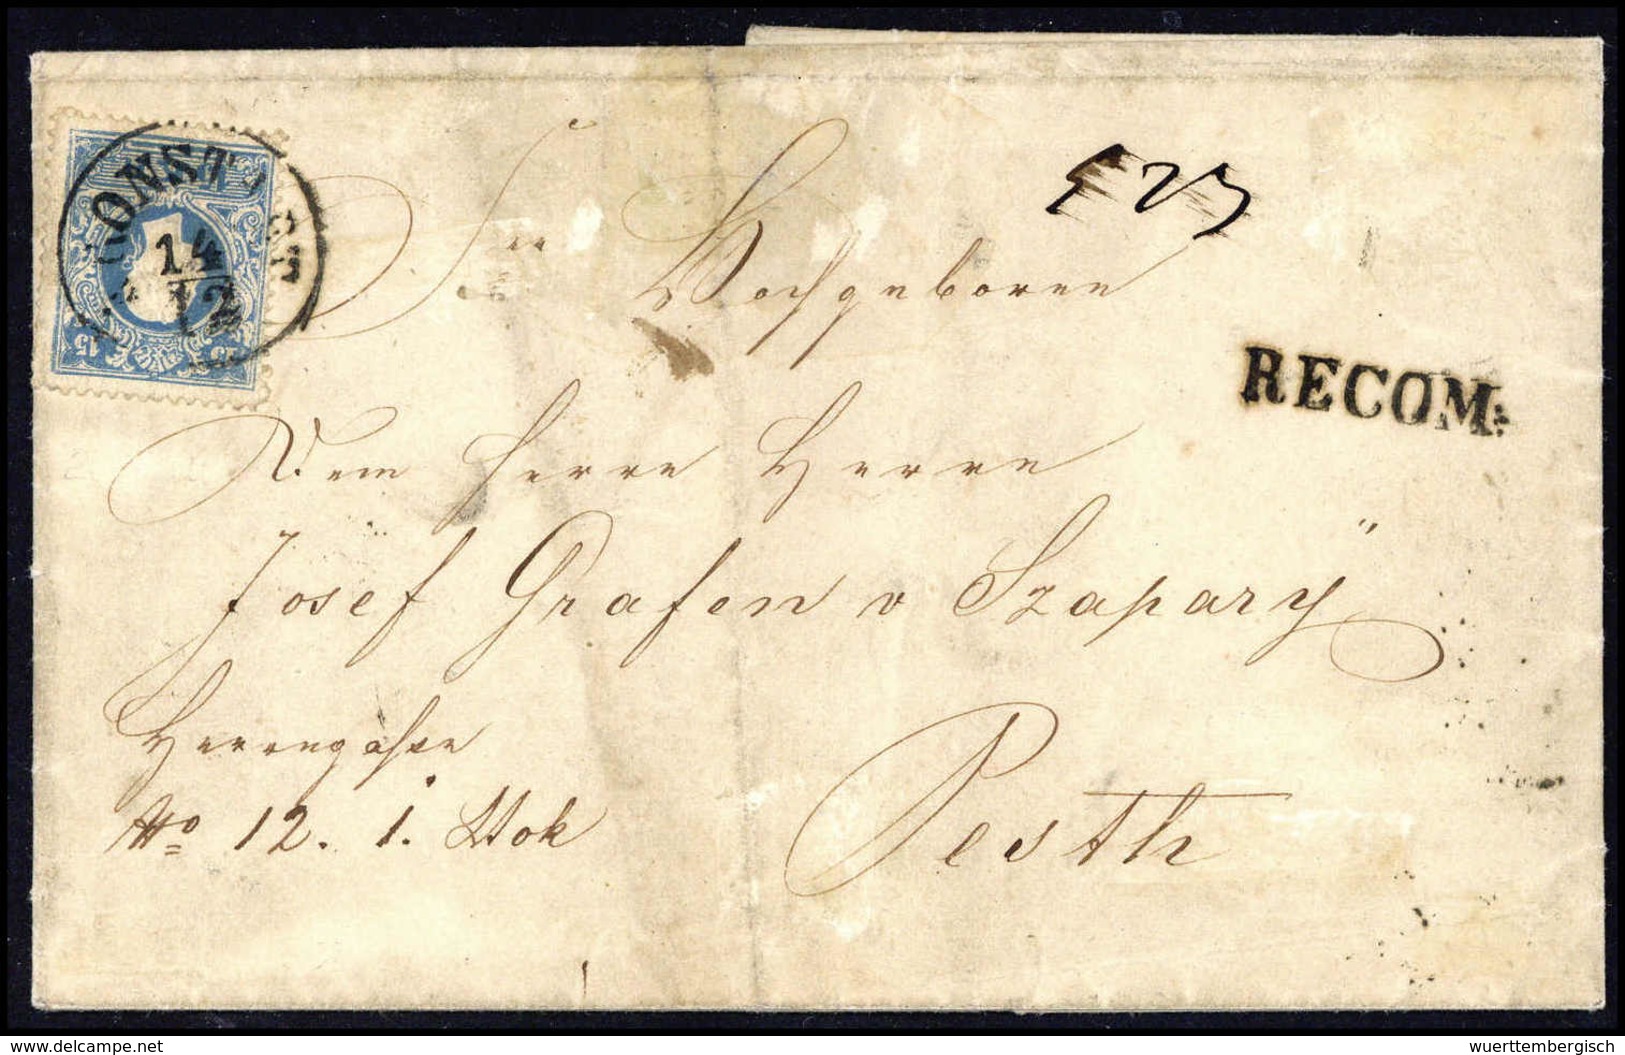 Sr Hochgeboren
Dem Herrn Herrn
Josef Grafen v Szapáry
Herrengasse
No 12. 1. Stok
Pesth
RECOM:
14
12
15
www.delcampe.net
wuerttembergisch